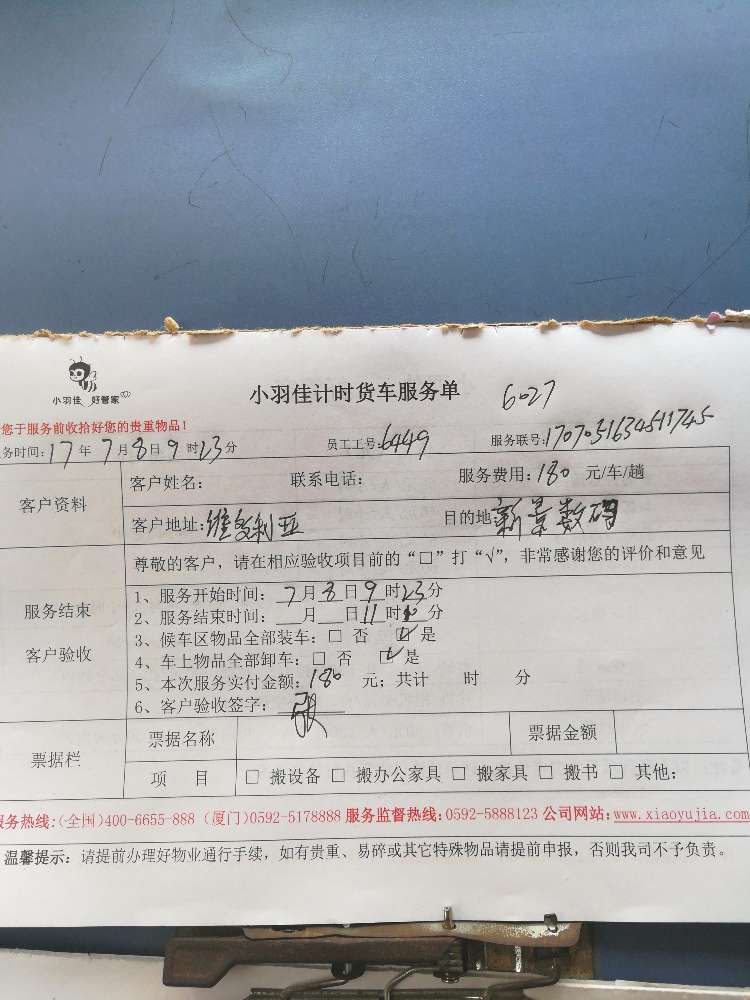 小羽佳 好管家
小羽佳计时货车服务单
6027
您于服务前收拾好您的贵重物品!
务时间:17年7月8日9时23分 员工工号:6449 服务联号:1707051634511745
客户资料
客户姓名: 联系电话: 服务费用:180 元/车/趟
客户地址:维多利亚 目的地 新景数码
服务结束
客户验收
尊敬的客户，请在相应验收项目前的“□”打“√”，非常感谢您的评价和意见
1、服务开始时间: 7月8日9时23分
2、服务结束时间: 月 日11时 分
3、候车区物品全部装车:□ 否 ☑ 是
4、车上物品全部卸车:□ 否 ☑ 是
5、本次服务实付金额:180 元；共计 时 分
6、客户验收签字:
票据栏
票据名称 票据金额
项 目 □ 搬设备 □ 搬办公家具 □ 搬家具 □ 搬书 □ 其他:
服务热线:(全国)400-6655-888 (厦门)0592-5178888 服务监督热线:0592-5888123 公司网站:www.xiaoyujia.com
温馨提示: 请提前办理好物业通行手续，如有贵重、易碎或其它特殊物品请提前申报，否则我司不予负责。